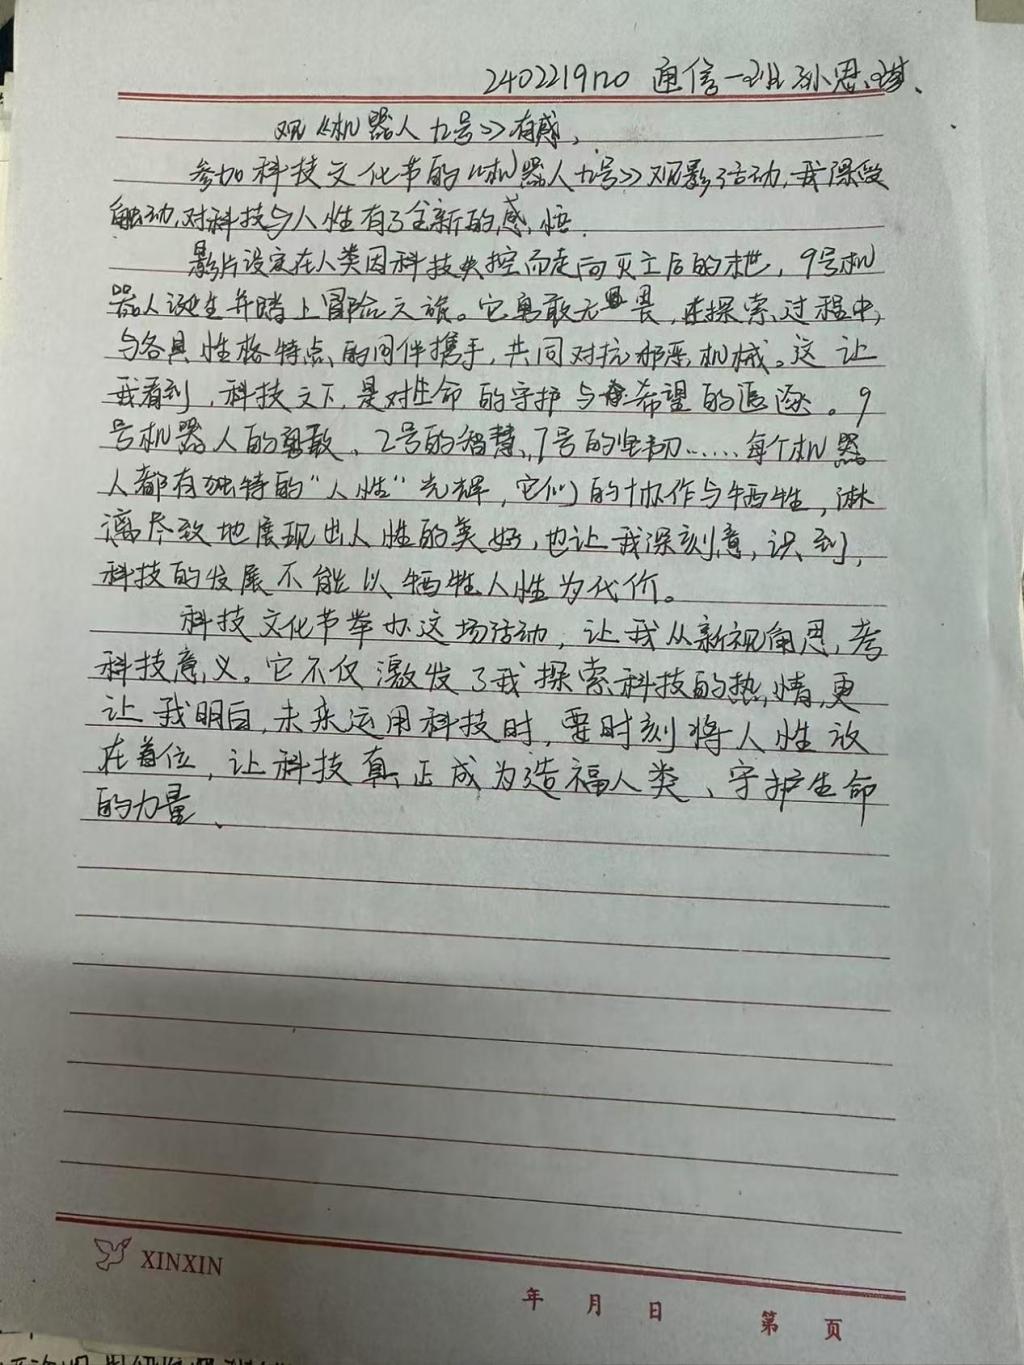 2402219120 通信一班 孙思琪、
观《机器人九号》有感、
参加科技文化节的《机器人九号》观影活动,我深受
触动,对科技与人性有了全新的感悟.
影片设定在人类因科技失控而走向灭亡后的末世,9号机
器人诞生并踏上冒险之旅。它勇敢无畏,在探索过程中,
与各具性格特点的同伴携手,共同对抗邪恶机械。这让
我看到,科技之下,是对生命的守护与希望的追逐。9
号机器人的勇敢、2号的智慧、7号的坚韧……每个机器
人都有独特的“人性”光辉,它们的协作与牺牲,淋
漓尽致地展现出人性的美好,也让我深刻意识到,
科技的发展不能以牺牲人性为代价。
科技文化节举办这场活动,让我从新视角思考
科技意义。它不仅激发了我探索科技的热情,更
让我明白,未来运用科技时,要时刻将人性放
在首位,让科技真正成为造福人类、守护生命
的力量、
XINXIN
年 月 日 第 页